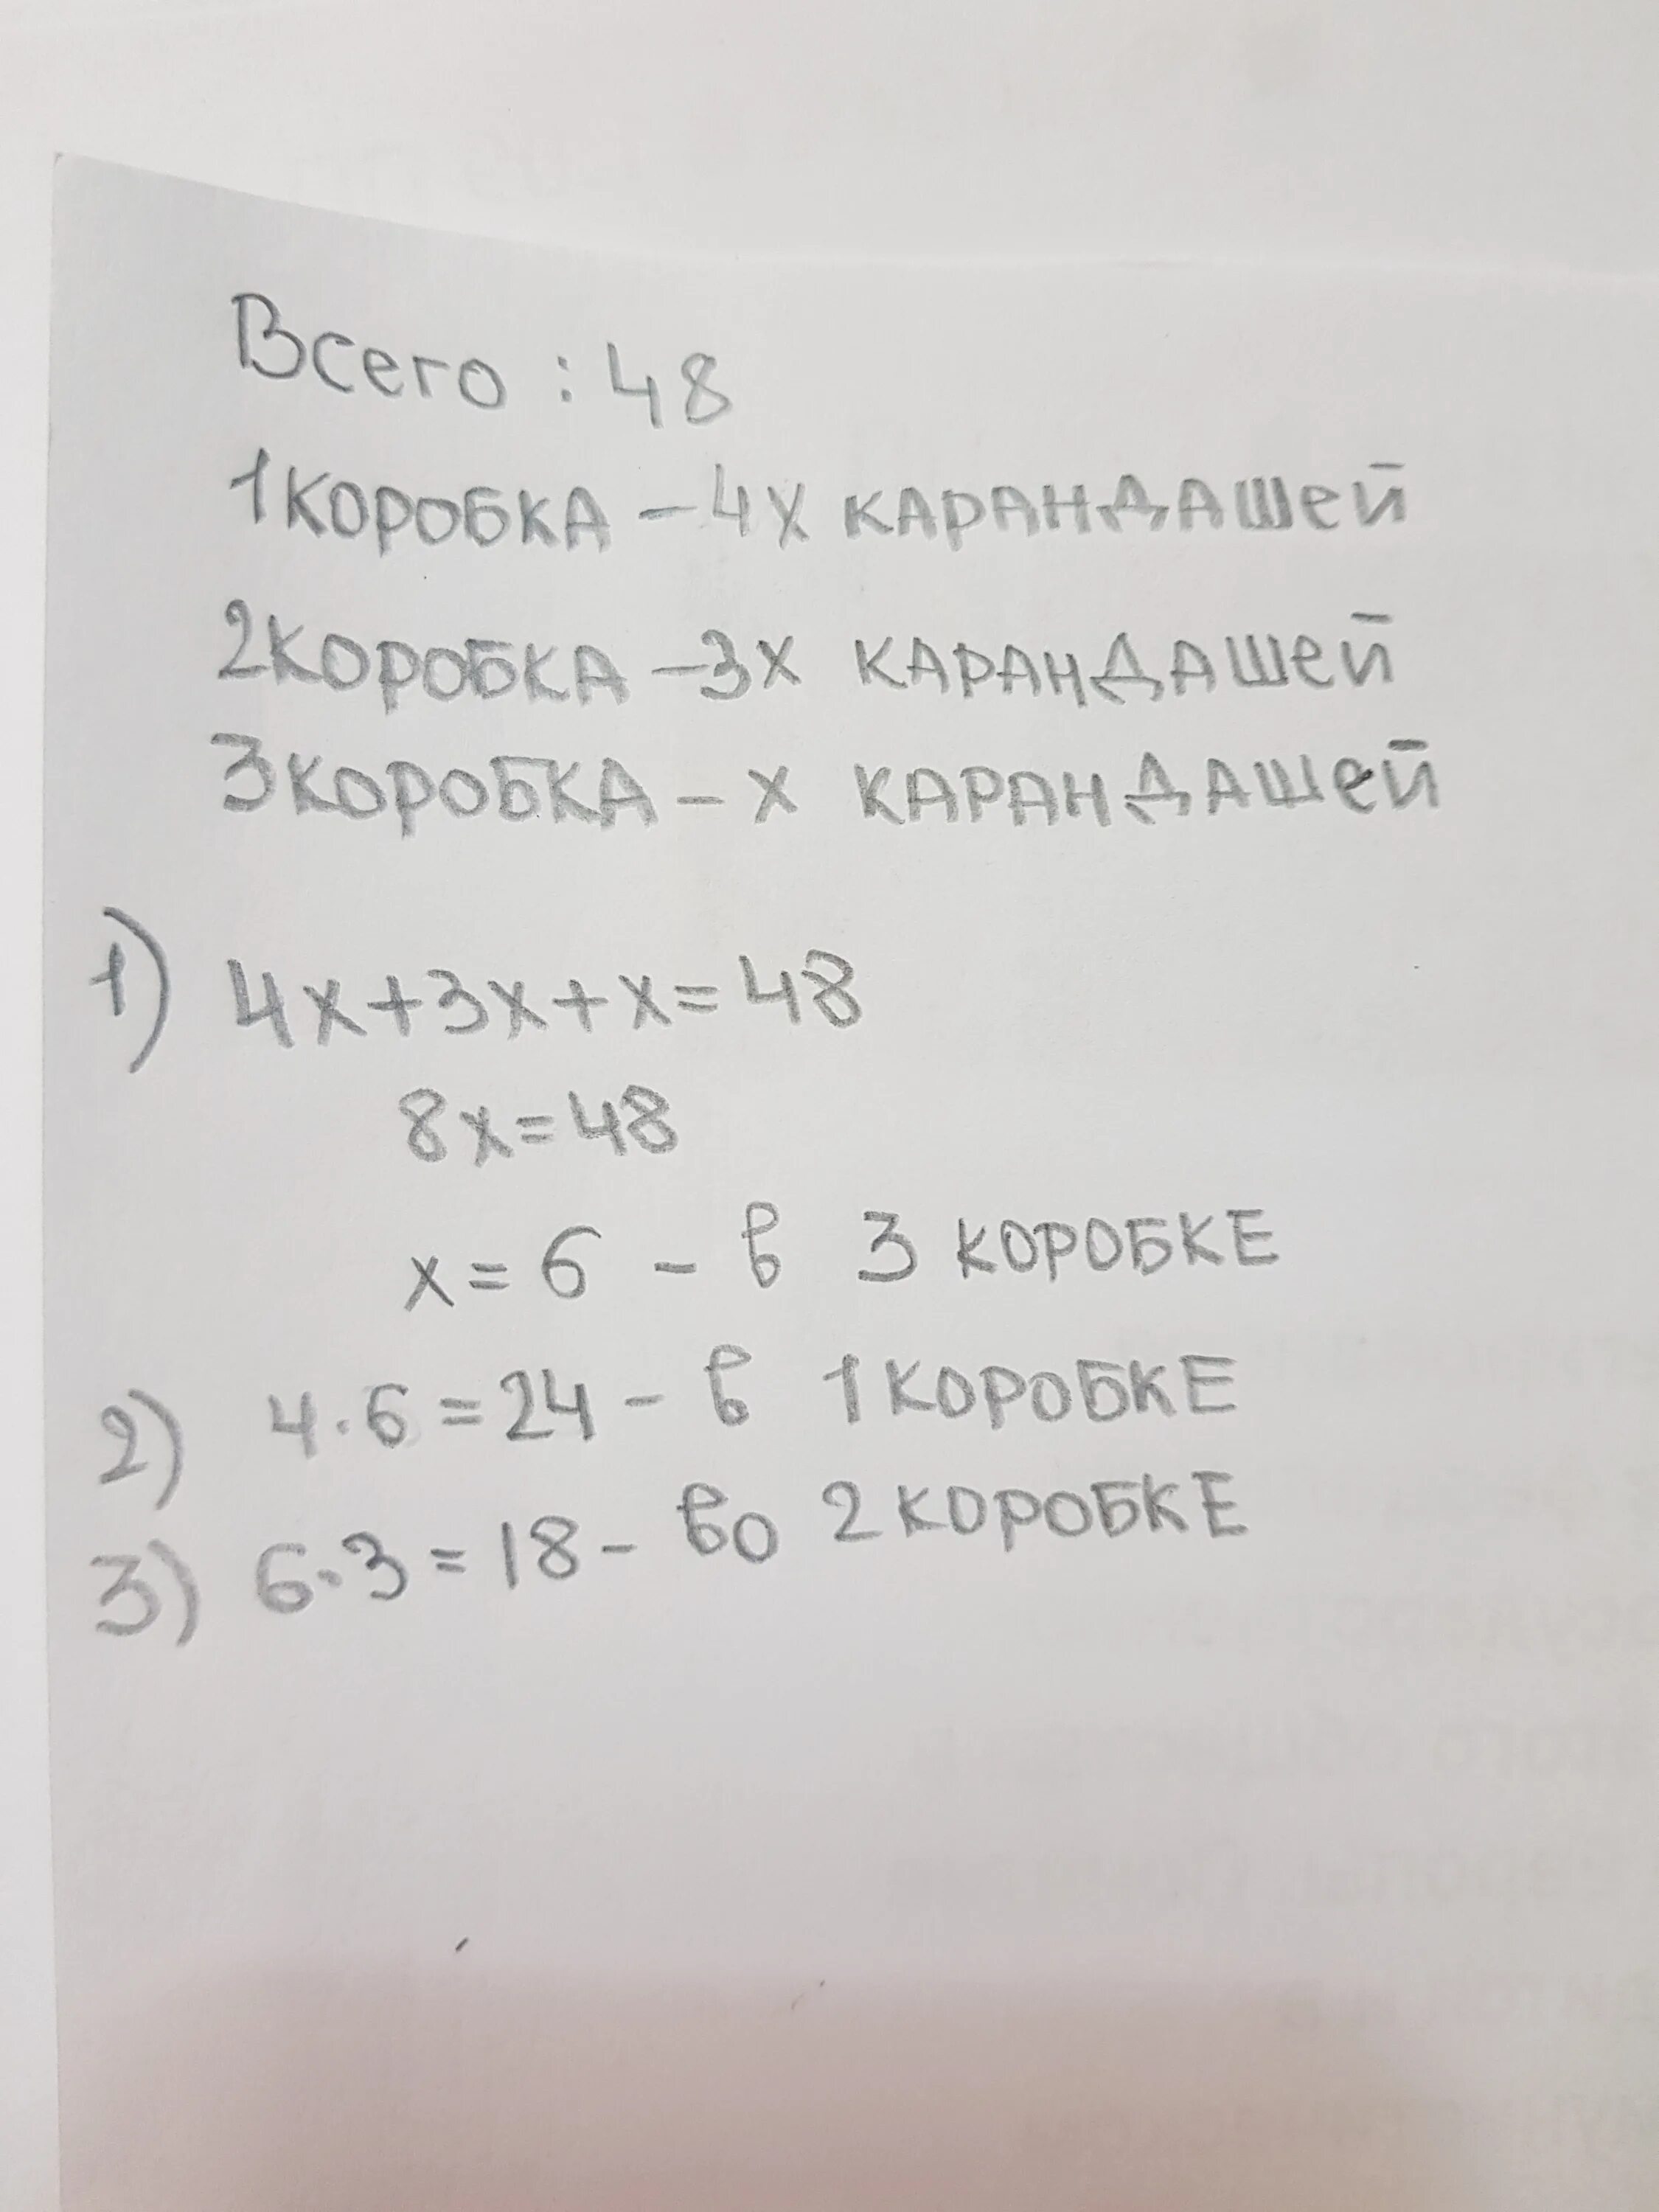 Всего : 48
1 КОРОБКА - 4х КАРАНДАШЕЙ
2 КОРОБКА - 3х КАРАНДАШЕЙ
3 КОРОБКА - х КАРАНДАШЕЙ
1) 4х+3х+х=48
8х=48
х=6 - в 3 КОРОБКЕ
2) 4·6=24 - в 1 КОРОБКЕ
3) 6·3=18 - во 2 КОРОБКЕ